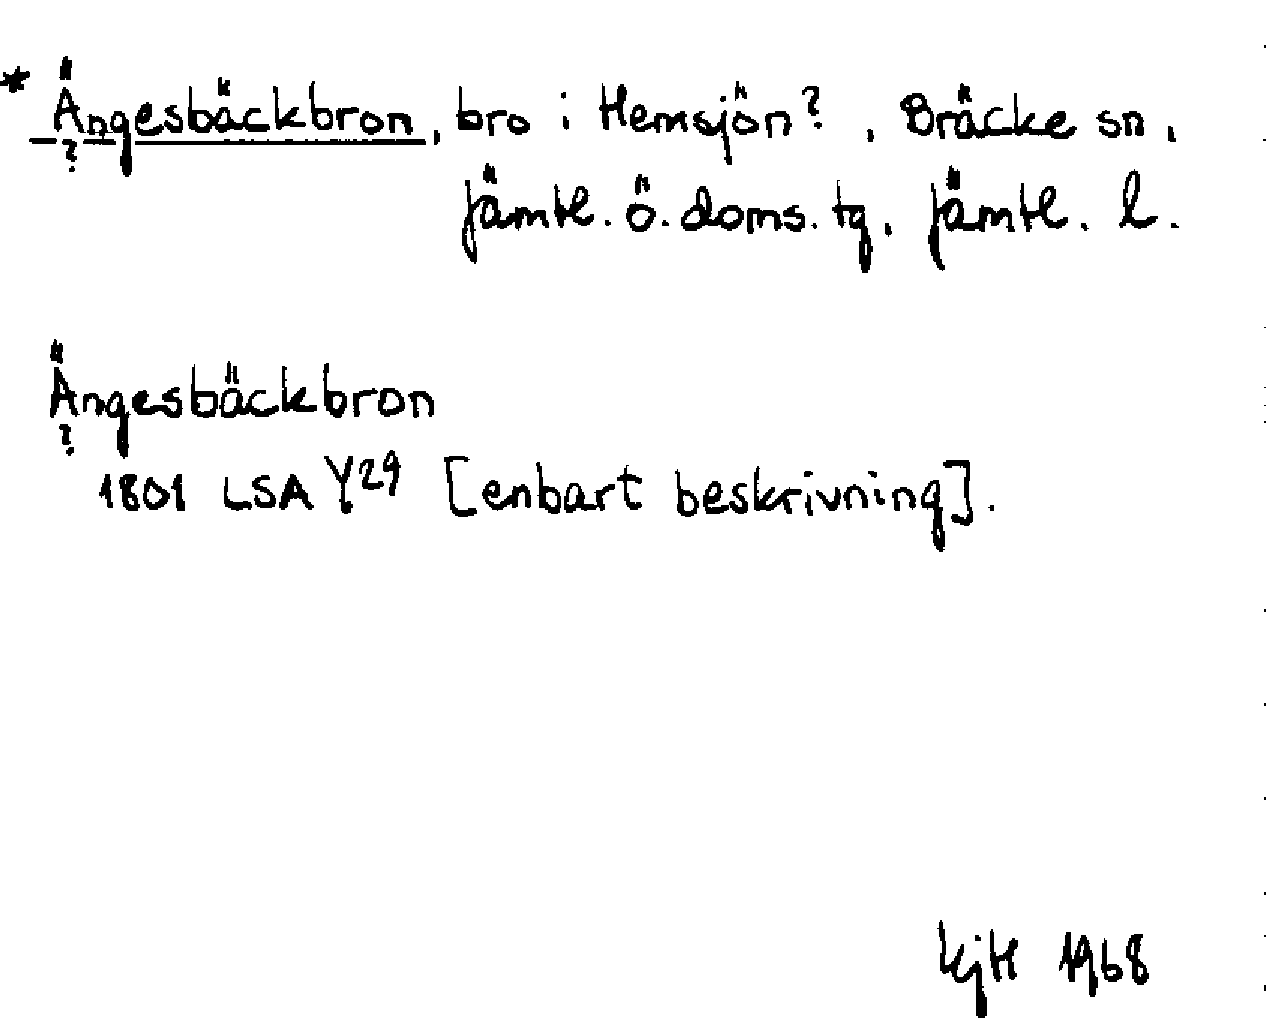 * Ängesbäckbron, bro i Hemsjön?, Bräcke sn,
?
Jämtl. ö. doms. tg, Jämtl. l.
Ängesbäckbron
?
1801 LSA Y29 [enbart beskrivning].
KjH 1968